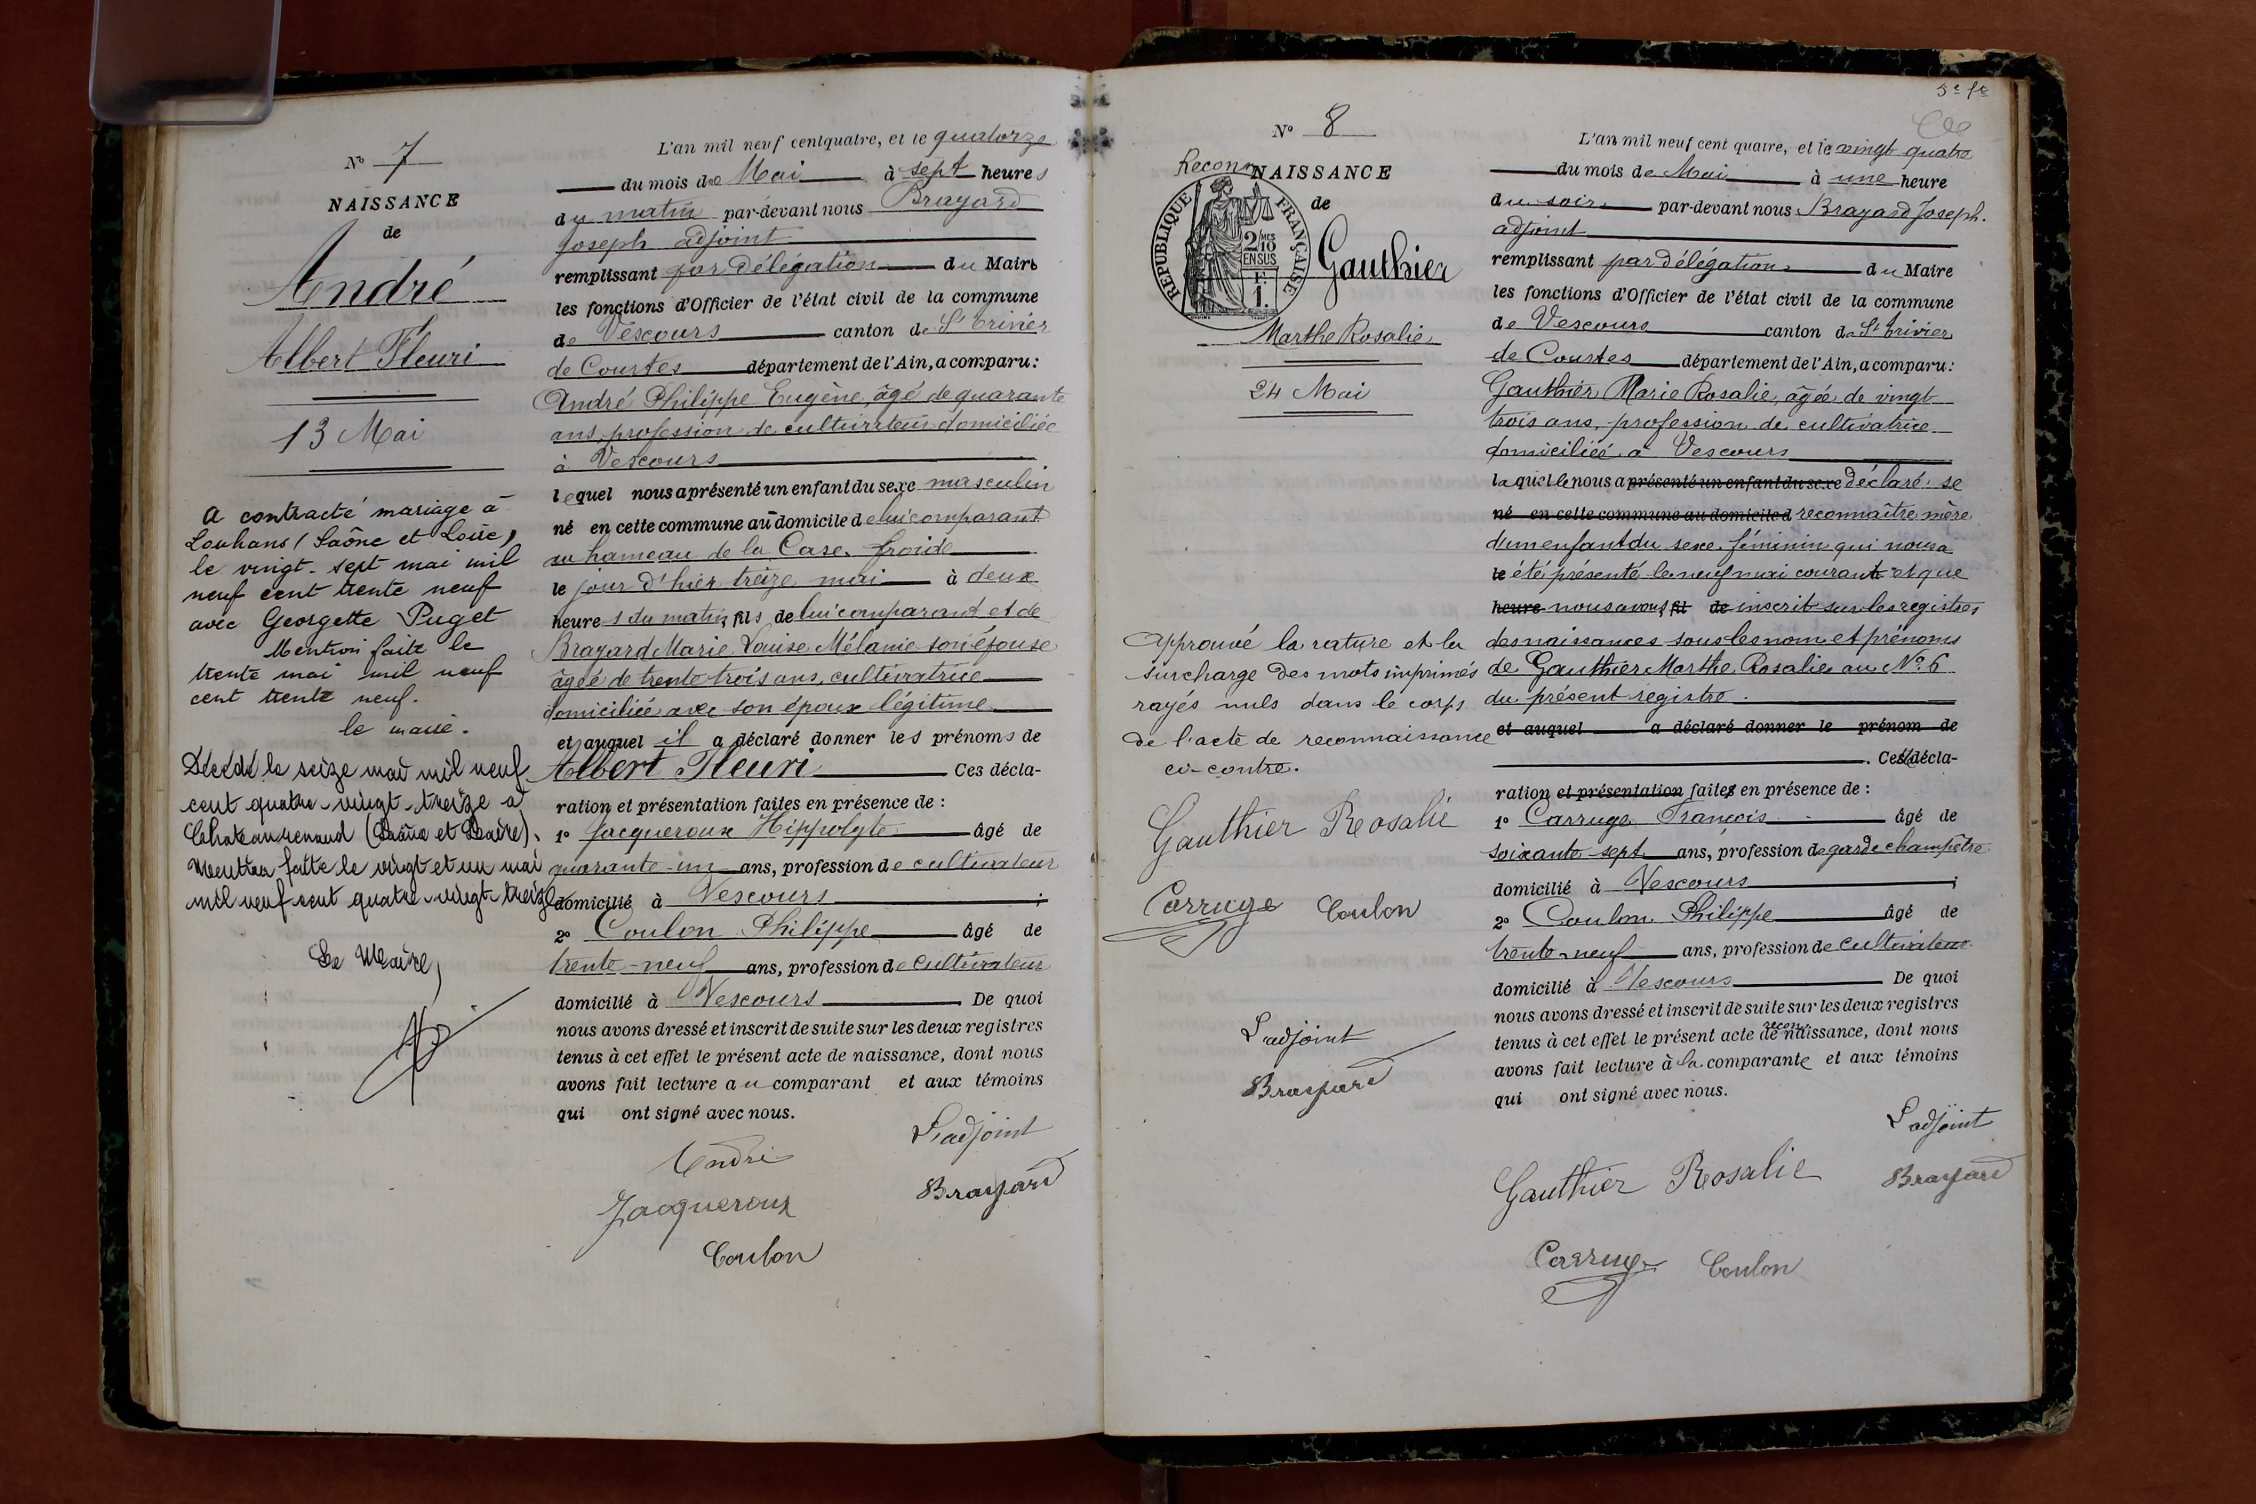 N° 7
NAISSANCE
de
André
Albert Fleuri
13 Mai
A contracté mariage à
Louhans (Saône et Loire),
le vingt-sept mai mil
neuf cent trente neuf
avec Georgette Puget
Mention faite le
trente mai mil neuf
cent trente neuf.
le maire.
Décédé le seize mai mil neuf
cent quatre-vingt-treize à
Chateaurenaud (Saône et Loire).
Mention faite le vingt et un mai
mil neuf cent quatre-vingt-treize
Le Maire,
L'an mil neuf cent quatre, et le quatorze
du mois de Mai à sept heures
du matin par-devant nous Brayard
Joseph adjoint
remplissant par délégation du Maire
les fonctions d'Officier de l'état civil de la commune
de Vescours canton de St Trivier
de Courtes département de l'Ain, a comparu :
André Philippe Eugène, âgé de quarante
ans, profession de cultivateur domiciliée
à Vescours
lequel nous a présenté un enfant du sexe masculin
né en cette commune au domicile de lui comparant
au hameau de la Case froide
le jour d'hier treize mai à deux
heures du matin, fils de lui comparant et de
Brayard Marie Louise Mélanie son épouse
âgée de trente trois ans, cultivatrice
domiciliée avec son époux légitime
et auquel il a déclaré donner les prénoms de
Albert Fleuri Ces décla-
ration et présentation faites en présence de :
1° Jacqueroux Hippolyte âgé de
quarante-un ans, profession de cultivateur
domicilié à Vescours ;
2° Coulon Philippe âgé de
trente-neuf ans, profession de cultivateur
domicilié à Vescours De quoi
nous avons dressé et inscrit de suite sur les deux registres
tenus à cet effet le présent acte de naissance, dont nous
avons fait lecture au comparant et aux témoins
qui ont signé avec nous.
L'adjoint
André
Brayard
Jacqueroux
Coulon
5e fe
N° 8
Reconn
NAISSANCE
de
REPUBLIQUE FRANÇAISE
2/10 MES
EN SUS
F.
1.
Gauthier
Marthe Rosalie
24 Mai
Approuvé la rature et la
surcharge des mots imprimés
rayés nuls dans le corps
de l'acte de reconnaissance
ci-contre.
Gauthier Rosalie
Carruge Coulon
L'adjoint
Brayard
L'an mil neuf cent quatre, et le vingt quatre
du mois de Mai à une heure
du soir par-devant nous Brayard Joseph.
adjoint
remplissant par délégation du Maire
les fonctions d'Officier de l'état civil de la commune
de Vescours canton de St Trivier
de Courtes département de l'Ain, a comparu :
Gauthier Marie Rosalie, âgée de vingt
trois ans, profession de cultivatrice
domiciliée à Vescours
laquelle nous a présenté un enfant du sexe déclaré se
né en cette commune au domicile d reconnaître mère
d'un enfant du sexe féminin qui nous a
le été présenté le neuf mai courant et que
heure nous avons fil de inscrit sur les registres
des naissances sous les nom et prénoms
de Gauthier Marthe Rosalie au N° 6
du présent registre.
et auquel a déclaré donner le prénom de
. Cette décla-
ration et présentation faites en présence de :
1° Carruge François âgé de
soixante-sept ans, profession de garde champêtre
domicilié à Vescours ;
2° Coulon Philippe âgé de
trente-neuf ans, profession de cultivateur
domicilié à Vescours De quoi
nous avons dressé et inscrit de suite sur les deux registres
tenus à cet effet le présent acte de reconnaissance, dont nous
avons fait lecture à la comparante et aux témoins
qui ont signé avec nous.
L'adjoint
Gauthier Rosalie Brayard
Carruge Coulon